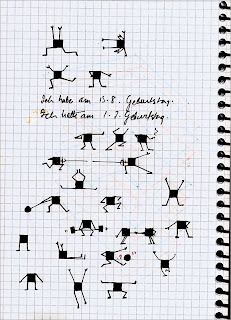 Ich habe am 13.8. Geburtstag.
Ich hatte am 1.7. Geburtstag.